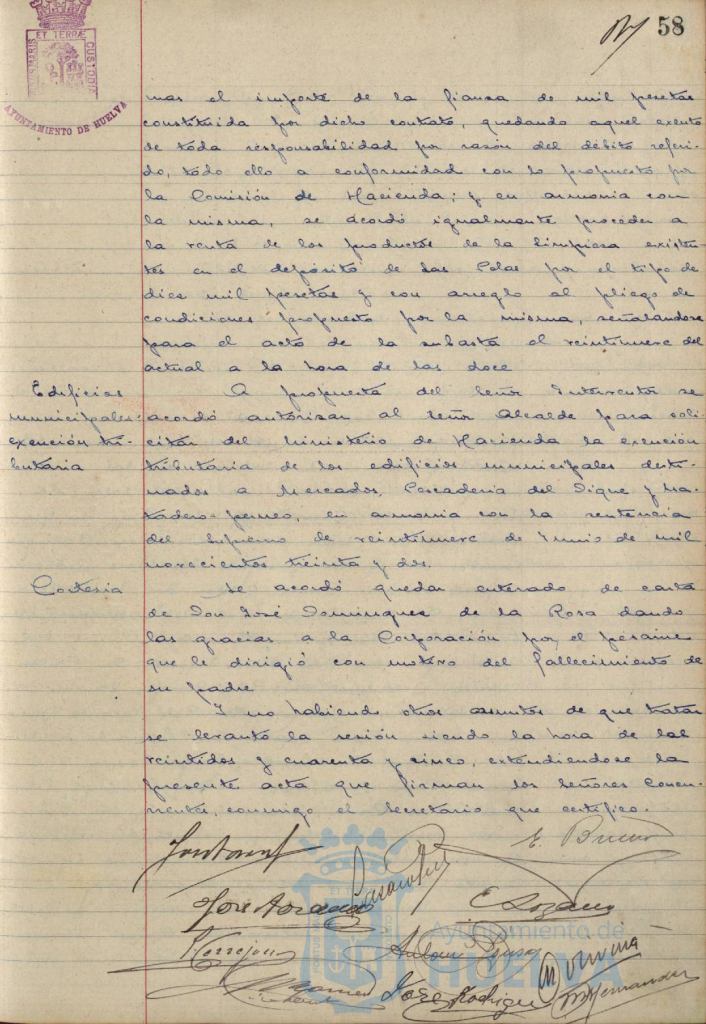 58
PORTUS MARIS ET TERRÆ CUSTODIA
AYUNTAMIENTO DE HUELVA
mas el importe de la fianza de mil pesetas
constituida por dicho contrato, quedando aquel exento
de toda responsabilidad por razón del débito referi-
do, todo ello a conformidad con lo propuesto por
la Comisión de Hacienda; y en armonia con
la misma, se acordó igualmente proceder a
la venta de los productos de la limpieza existen-
tes en el depósito de las Colas por el tipo de
diez mil pesetas y con arreglo al pliego de
condiciones propuesto por la misma, señalandose
para el acto de la subasta el veintinueve del
actual a la hora de las doce
Edificios
municipales:
exención tri-
butaria
A propuesta del Señor Interventor se
acordó autorizar al Señor Alcalde para soli-
citar del Ministerio de Hacienda la exención
tributaria de los edificios municipales desti-
nados a Mercados, Pescaderia del Dique y Ma-
tadero-perneo, en armonia con la sentencia
del Supremo de veintinueve de Junio de mil
novecientos treinta y dos.
Cortesia
Se acordó quedar enterado de carta
de Don José Dominguez de la Rosa dando
las gracias a la Corporación por el pésame
que le dirigió con motivo del fallecimiento de
su padre
Y no habiendo otros asuntos de que tratar
se levantó la sesión siendo la hora de las
veintidos y cuarenta y cinco, extendiendose la
presente acta que firman los Señores Concu-
rrentes, conmigo el Secretario que certifico.
E.
José
E. Lozano
José Rodrigue
Hernandez
Ayuntamiento de
HUELVA